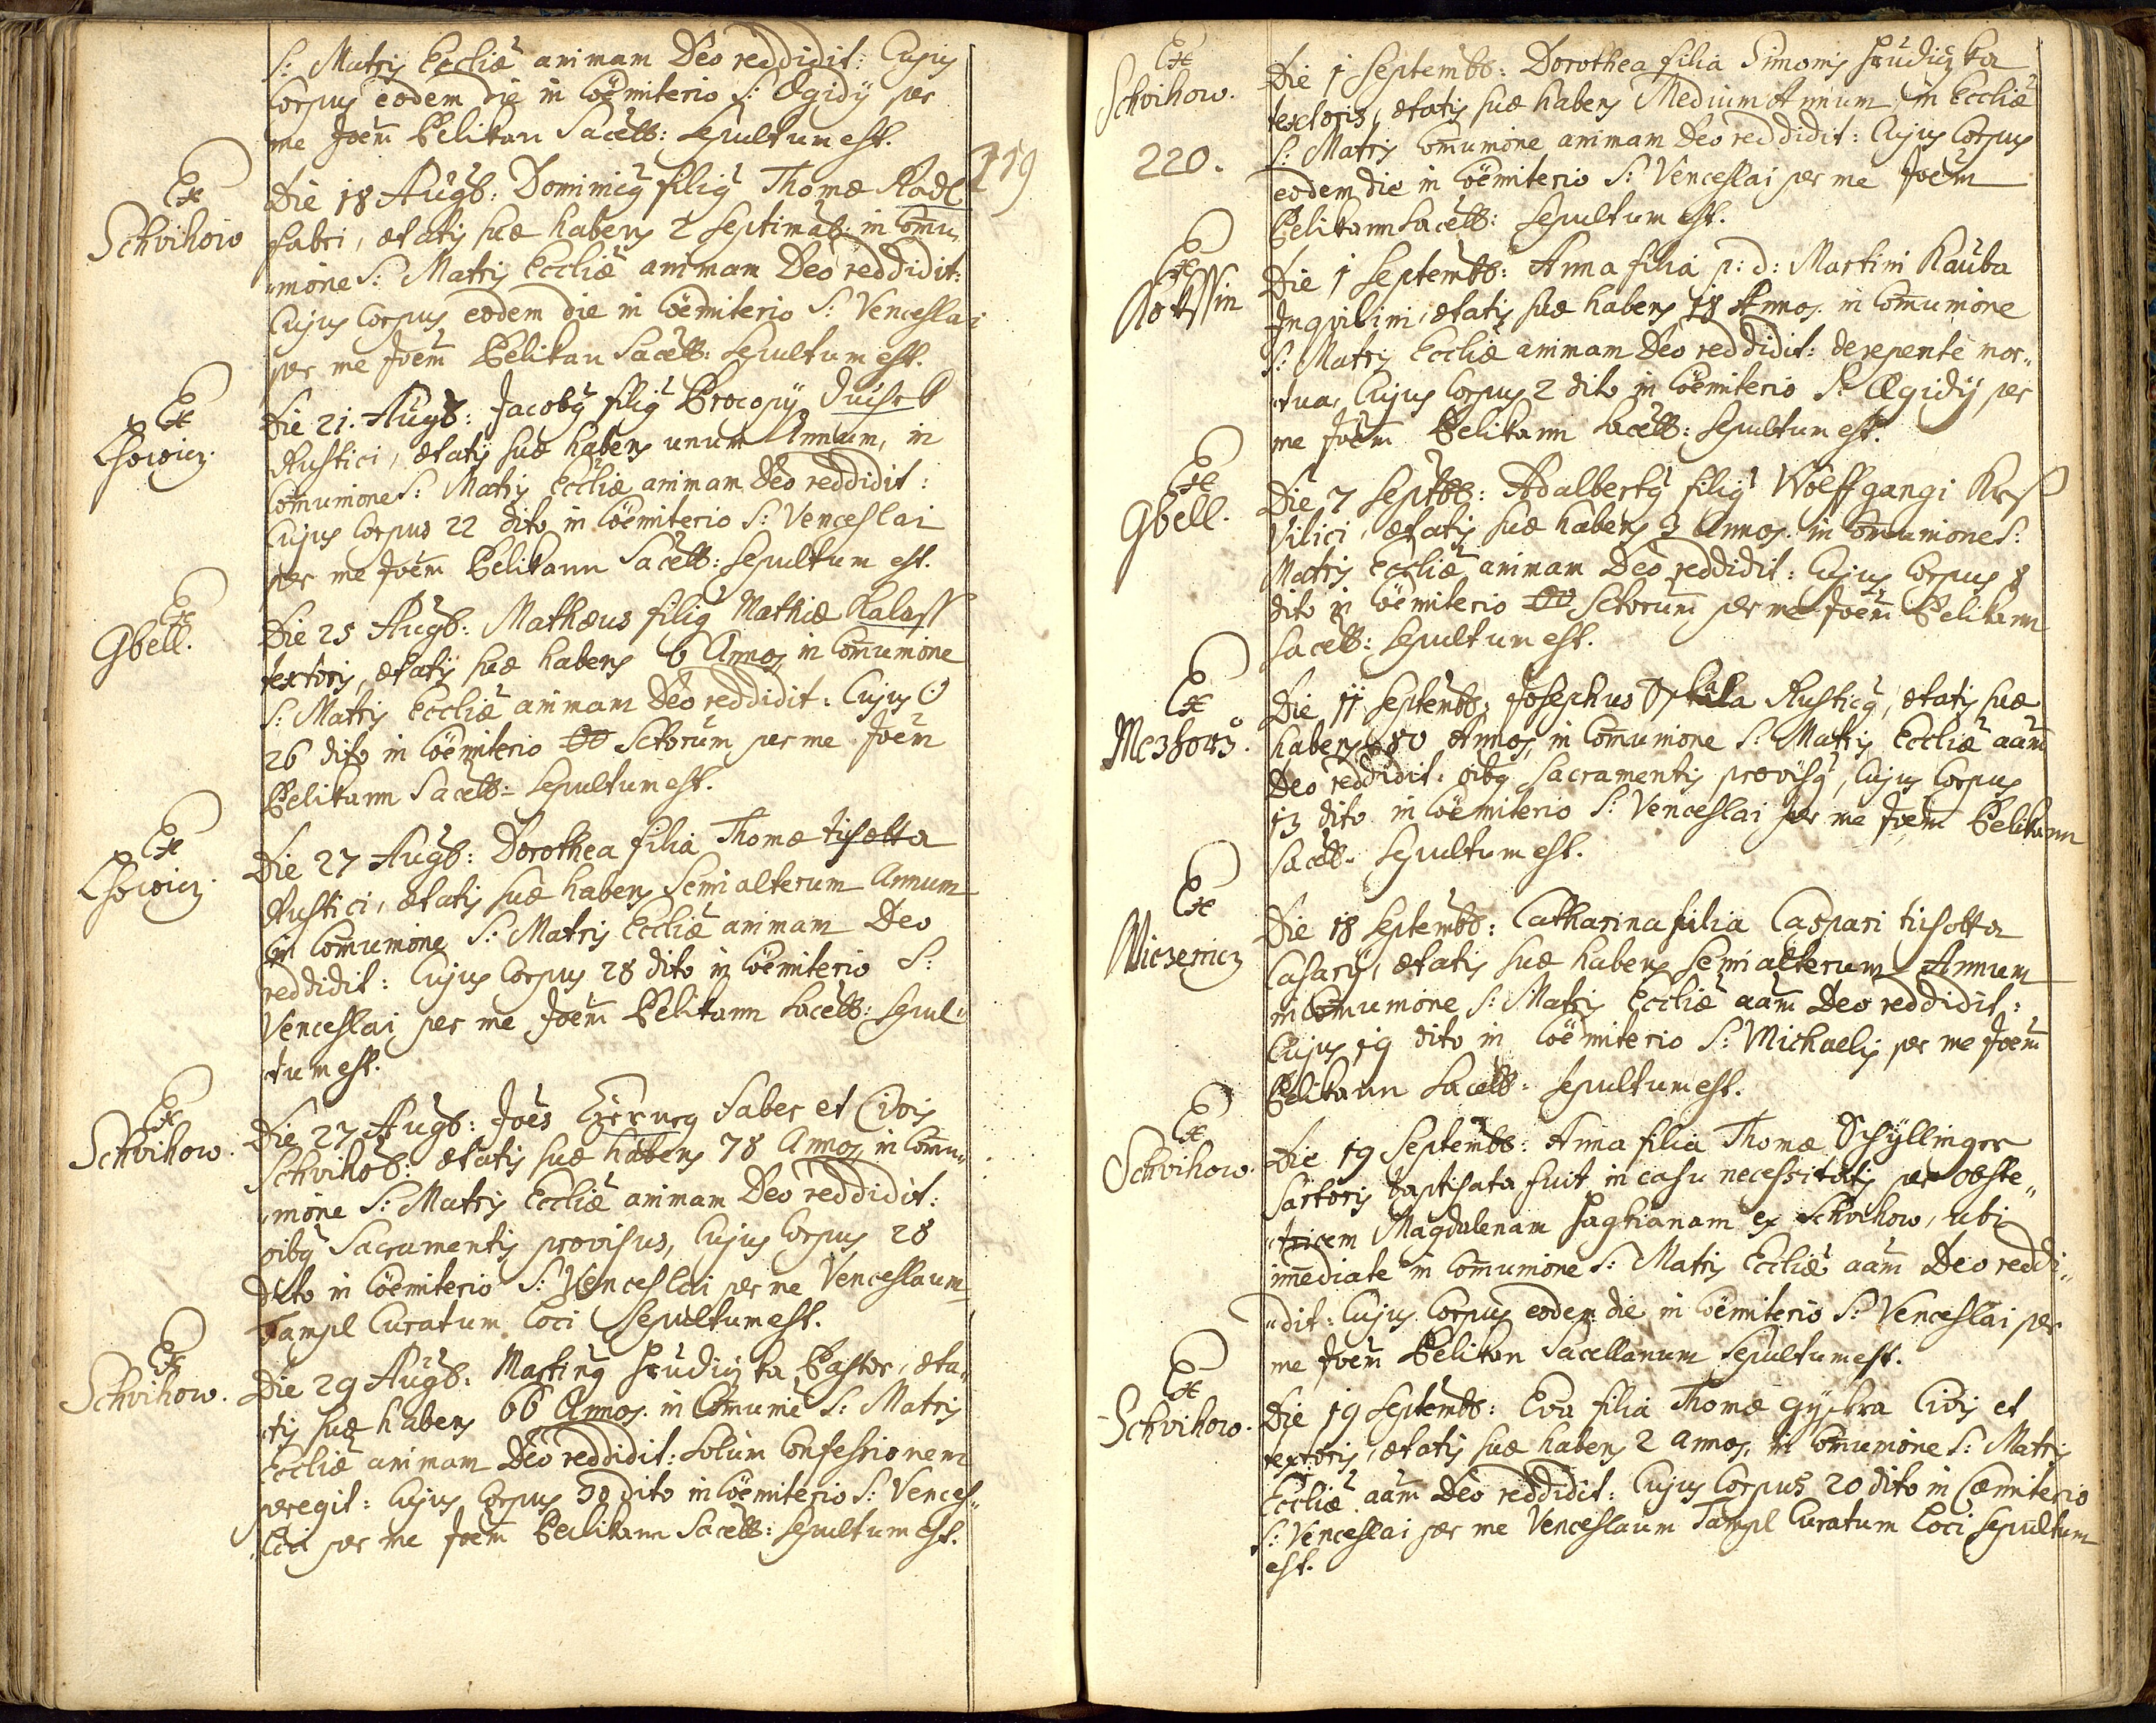 S: Matris Eccliæ animam Deo reddidit: Cujus
Corpus eodem die in Cöemiterio S: Ægidij per
me Joem̄ Pelikan Sacell: Sepultum est.
219
Ex
Schvihow
Die 18 Augb: Dominicg filig Thomæ Kadl
fabri, ætatis suæ habens 2 septimas: in Com̄u„
„nione S: Matris Eccliæ animam Deo reddidit:
Cujus Corpus eodem die in Cöemiterio S: Venceslai
per me Joem̄ Pelikan Sacell: Sepultum est.
Ex
Lhowicz.
Die 21. Augb: Jacobg filig Procopij
Rustici, ætatis suæ habens unum Annum, in
Com̄unione S: Matris Eccliæ animam Deo reddidit:
Cujus Corpus 22 dito in Cöemiterio S: Venceslai
per me Joem̄ Pelikann Sacell: Sepultum est.
Ex
Gbell.
Die 25 Augb: Mathæus filig Mathiæ Kalass
textoris, ætatis suæ habens 6 Annos in Com̄unione
S: Matris Eccliæ animam Deo reddidit: Cujus C:
26 dito in Cöemiterio OO Sctorum per me Joem̄
Pelikann Sacell: Sepultum est.
Ex
Lhowicz.
Die 27 Augb: Dorothea filia Thomæ
Rustici, ætatis suæ habens Semialterum Annum
in Com̄unione S: Matris Eccliæ animam Deo
reddidit: Cujus Corpus 28 dito in Cöemiterio S:
Venceslai per me Joem̄ Pelikann Sacell: Sepul„
„tum est.
Ex
Schvihow.
Die 27 Augb: Joes faber et Civis
Schvihob: ætatis suæ habens 78 Annos in Com̄u„
„nione S: Matris Eccliæ animam Deo reddidit:
oibg Sacramentis provisus, Cujus Corpus 28
dito in Cöemiterio S: Venceslai per me Venceslaum
Tampl Curatum Loci Sepultum est.
Ex
Schvihow.
Die 29 Augb: Marting Hrudiczka Pastor, æta„
„tis suæ habens 66 Annos. in Com̄unie S: Matris
Eccliæ animam Deo reddidit: Solum Confessionem
peregit: Cujus Corpus 30 dito in Cöemiterio S: Vences„
„lai per me Joem̄ Pelikann Sacell: Sepultum est.
Ex
Schvihow.
220.
Die 1 Septemb: Dorothea filia Simonis Hrudiczka
textoris, ætatis suæ habens Medium Annum, in Eccliæ
S: Matris Com̄unione animam Deo reddidit: Cujus Corpus
eodem die in Cöemiterio S: Venceslai per me Joem̄
Pelikann Sacell: Sepultum est.
Ex
Die 1 Septemb: Anna filia p: d: Martini Kauba
Inquilini, ætatis suæ habens 18 Annos in Com̄unione
S: Matris Eccliæ animam Deo reddidit: derepentè mor„
„tua, Cujus Corpus 2 dito in Cöemiterio S: Ægidij per
me Joem̄ Pelikann Sacell: Sepultum est.
Ex
Gbell.
Die 7 Septbb: Adalbertg filig Wolffgangi Krs
Vilici, ætatis suæ habens 3 Annos in Com̄unione S:
Matris Eccliæ animam Deo reddidit: Cujus Corpus 8
dito in Cöemiterio OO Sctorum per me Joem̄ Pelikann
Sacell: Sepultum est.
Ex
Mezhorz.
Die 11 Septemb: Josephus Skala Rusticg, ætatis suæ
habens 80 Annos in Com̄unione S: Matris Eccliæ aam̄
Deo reddidit: oibg Sacramentis provisg, Cujus Corpus
13 dito in Cöemiterio S: Venceslai per me Joem̄ Pelikann
Sacell: Sepultum est.
Ex
Wiczenicz
Die 18 Septemb: Catharina filia Caspari
Casarij, ætatis suæ habens Semialterum Annum
in Com̄unione S: Matris Eccliæ aam̄ Deo reddidit:
Cujus 19 dito in Cöemiterio S: Michaelis per me Joem̄
Pelikann Sacell: Sepultum est.
Ex
Schvihow.
Die 19 Septemb: Anna filia Thomæ Schyllinger
Sartoris baptisata fuit in casu necessitatis per obste„
„tricem Magdalenam ex Schvihow, ubi
im̄ediate in Com̄unione S: Matris Eccliæ aam̄ Deo reddi„
„dit: Cujus Corpus eodem die in Cöemiterio S: Venceslai per
me Joem̄ Pelikan Sacellanum Sepultum est.
Ex
Schvihow.
Die 19 Septemb: Eva filia Thomæ Gyskra Civis et
textoris, ætatis suæ habens 2 annos, in Com̄unione S: Matris
Eccliæ aam̄ Deo reddidit: Cujus Corpus 20 dito in Cæmiterio
S: Venceslai per me Venceslaum Tampl Curatum Loci Sepultum
est.